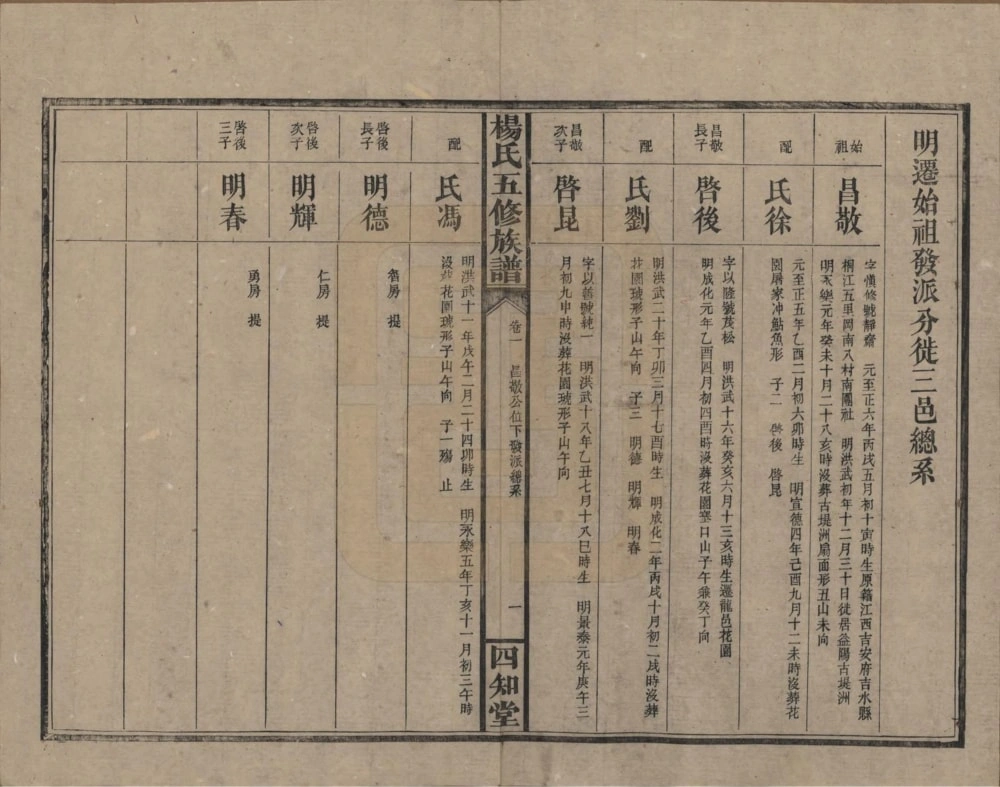 明遷始祖發派分徙三邑總系
始祖
昌敬
字漢修號靜齋　元至正六年丙戌五月初十寅時生原籍江西吉安府吉水縣
桐江五里岡南八村南團社　明洪武初年十二月三十日徙居益陽古堤洲
明永樂元年癸未十月二十八亥時沒葬古堤洲扇面形丑山未向
配
氏徐
元至正五年乙酉二月初六卯時生　明宣德四年己酉九月十二未時沒葬花
園屠家冲鮎魚形　子二　啓後　啓昆
昌敬長子
啓後
字以隆號茂松　明洪武十六年癸亥六月十三亥時生遷龍邑花園
明成化元年乙酉四月初四酉時沒葬花園塞口山子午兼癸丁向
配
氏劉
明洪武二十年丁卯三月十七酉時生　明成化二年丙戌十月初二戌時沒葬
花園琥形子山午向　子三　明德　明輝　明春
昌敬次子
啓昆
字以善號純一　明洪武十八年乙丑七月十八巳時生　明景泰元年庚午三
月初九申時沒葬花園琥形子山午向
楊氏五修族譜
卷一　昌敬公位下發派總系
一
四知堂
配
氏馮
明洪武十一年戊午二月二十四卯時生　明永樂五年丁亥十一月初三午時
沒葬花園琥形子山午向　子一殤　止
啓後長子
明德
智房　提
啓後次子
明輝
仁房　提
啓後三子
明春
勇房　提